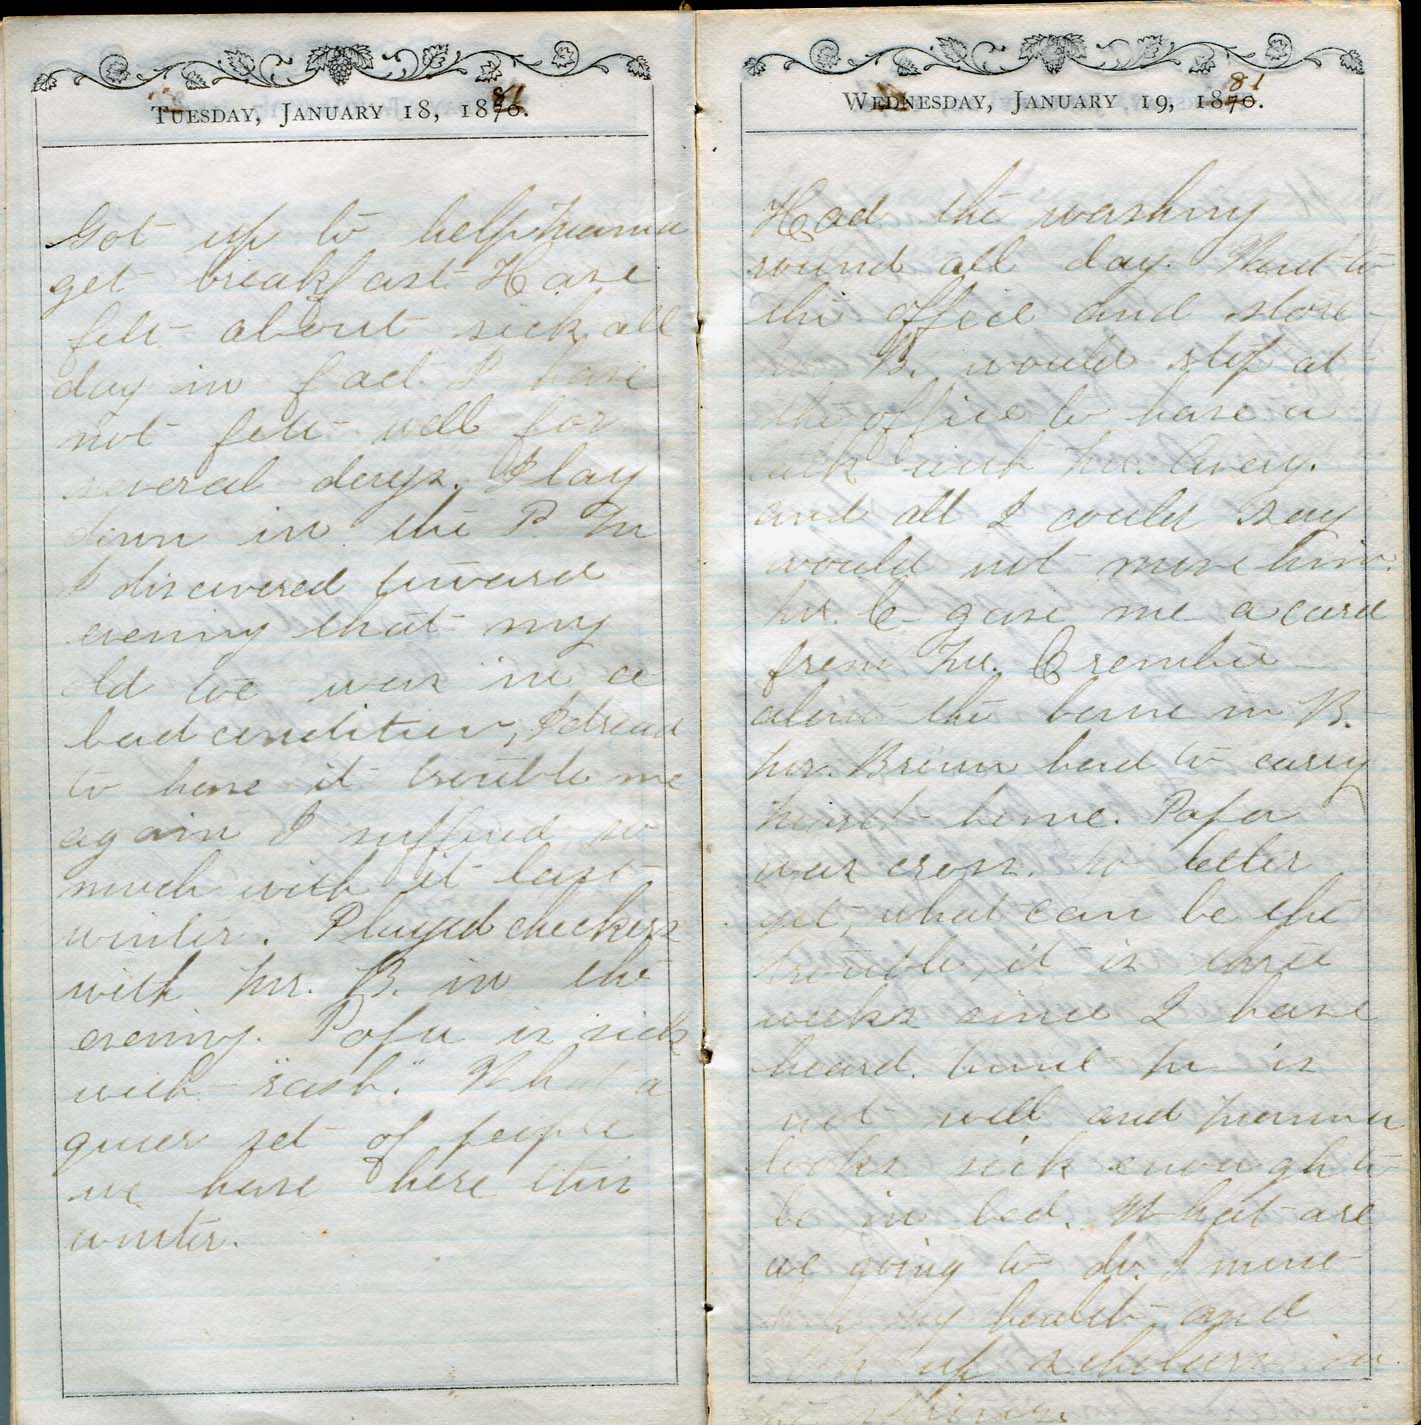 TUESDAY, JANUARY 18, 1870.
81
Got up to help Mama
get breakfast. Have
felt about sick all
day in fact I have
not felt well for
several days. I lay
down in the P. M
I discovered toward
evening that my
old toe was in a
bad condition, I dread
to have it trouble me
again I suffered so
much with it last
winter. Played checkers
with Mr. B. in the
evening. Papa is sick
with "rash". What a
queer set of people
we have here this
winter.
WEDNESDAY, JANUARY 19, 1870.
81
Had the washing
round all day. Went to
the office and store
B. would stop at
the office to have a
talk with Mr. Avery.
and all I could say
would not move him.
Mr. C gave me a card
from Mr.
about the horse B.
Mr. Brown had to carry
home. Papa
was cross. No letter
yet, what can be the
trouble, it is three
weeks since I have
heard. he is
not well and Mamma
looks sick enough to
be in bed. What are
we going to do. I must
my health and
up scholars in